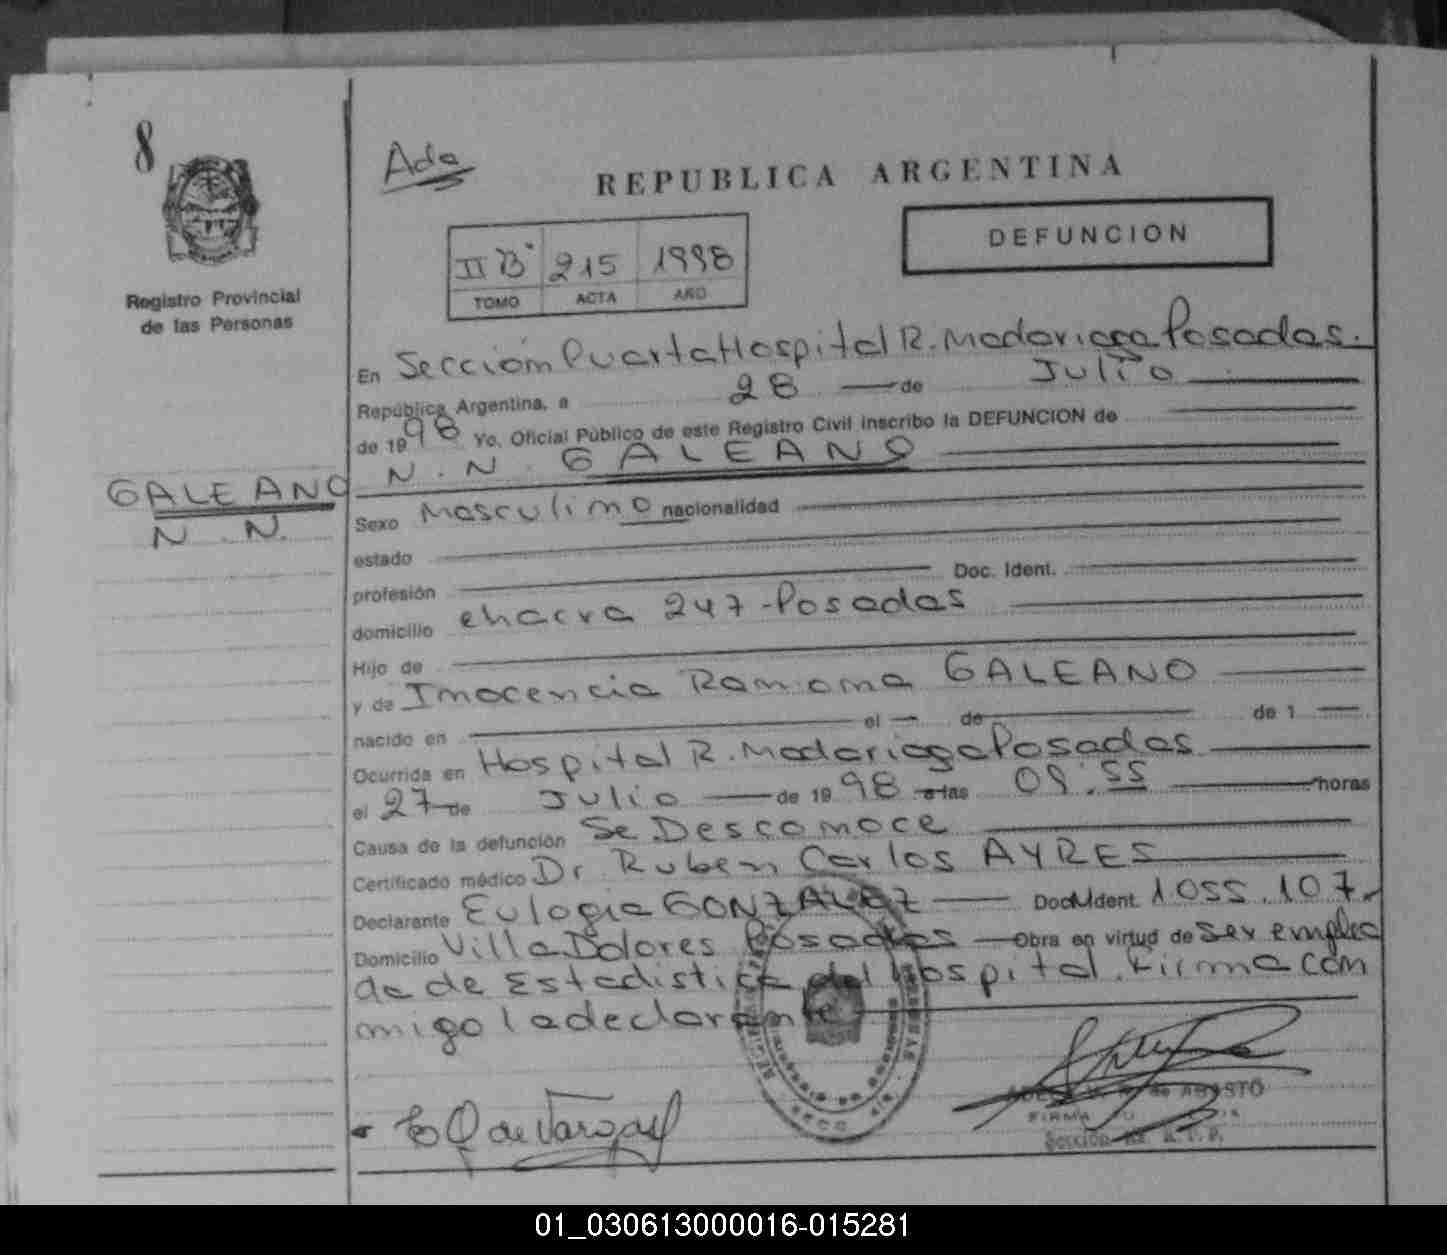 8
Ada
REPUBLICA ARGENTINA
DEFUNCION
II Bº 215 1998
TOMO ACTA AÑO
Registro Provincial
de las Personas
En Sección Cuarta Hospital R. Madariaga Posadas.
República Argentina, a 28 de Julio
de 1998 Yo, Oficial Público de este Registro Civil inscribo la DEFUNCION de
N. N. GALEANO
GALEANO
N. N.
Sexo Masculino nacionalidad
estado
profesión Doc. Ident.
domicilio chacra 247 - Posadas
Hijo de
y de Inocencia Ramona GALEANO
nacido en el de de 1
Ocurrida en Hospital R. Madariaga Posadas
el 27 de Julio de 1998 a las 09:55 horas
Causa de la defunción Se Desconoce
Certificado médico Dr. Ruben Carlos AYRES
Declarante Eulogia GONZALEZ Doc. Ident. 1.055.107
Domicilio Villa Dolores Posadas Obra en virtud de ser emplea
da de Estadistica del Hospital. Firma con
migo la declarante
de AGOSTO
FIRMA
Sección
01_030613000016-015281